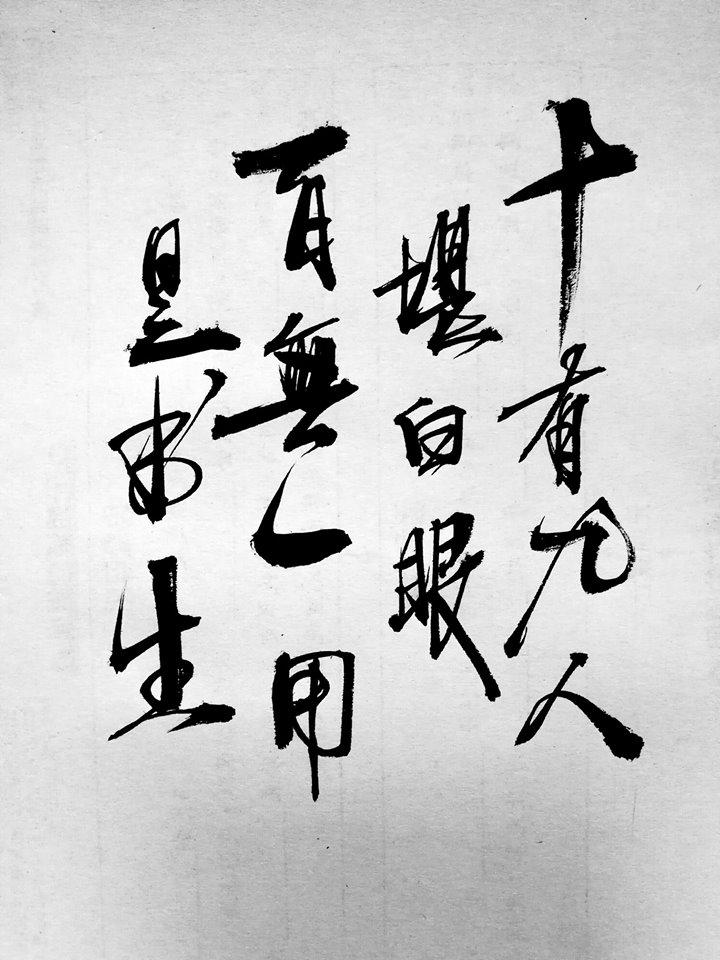 十有九人
堪白眼
百無一用
是书生